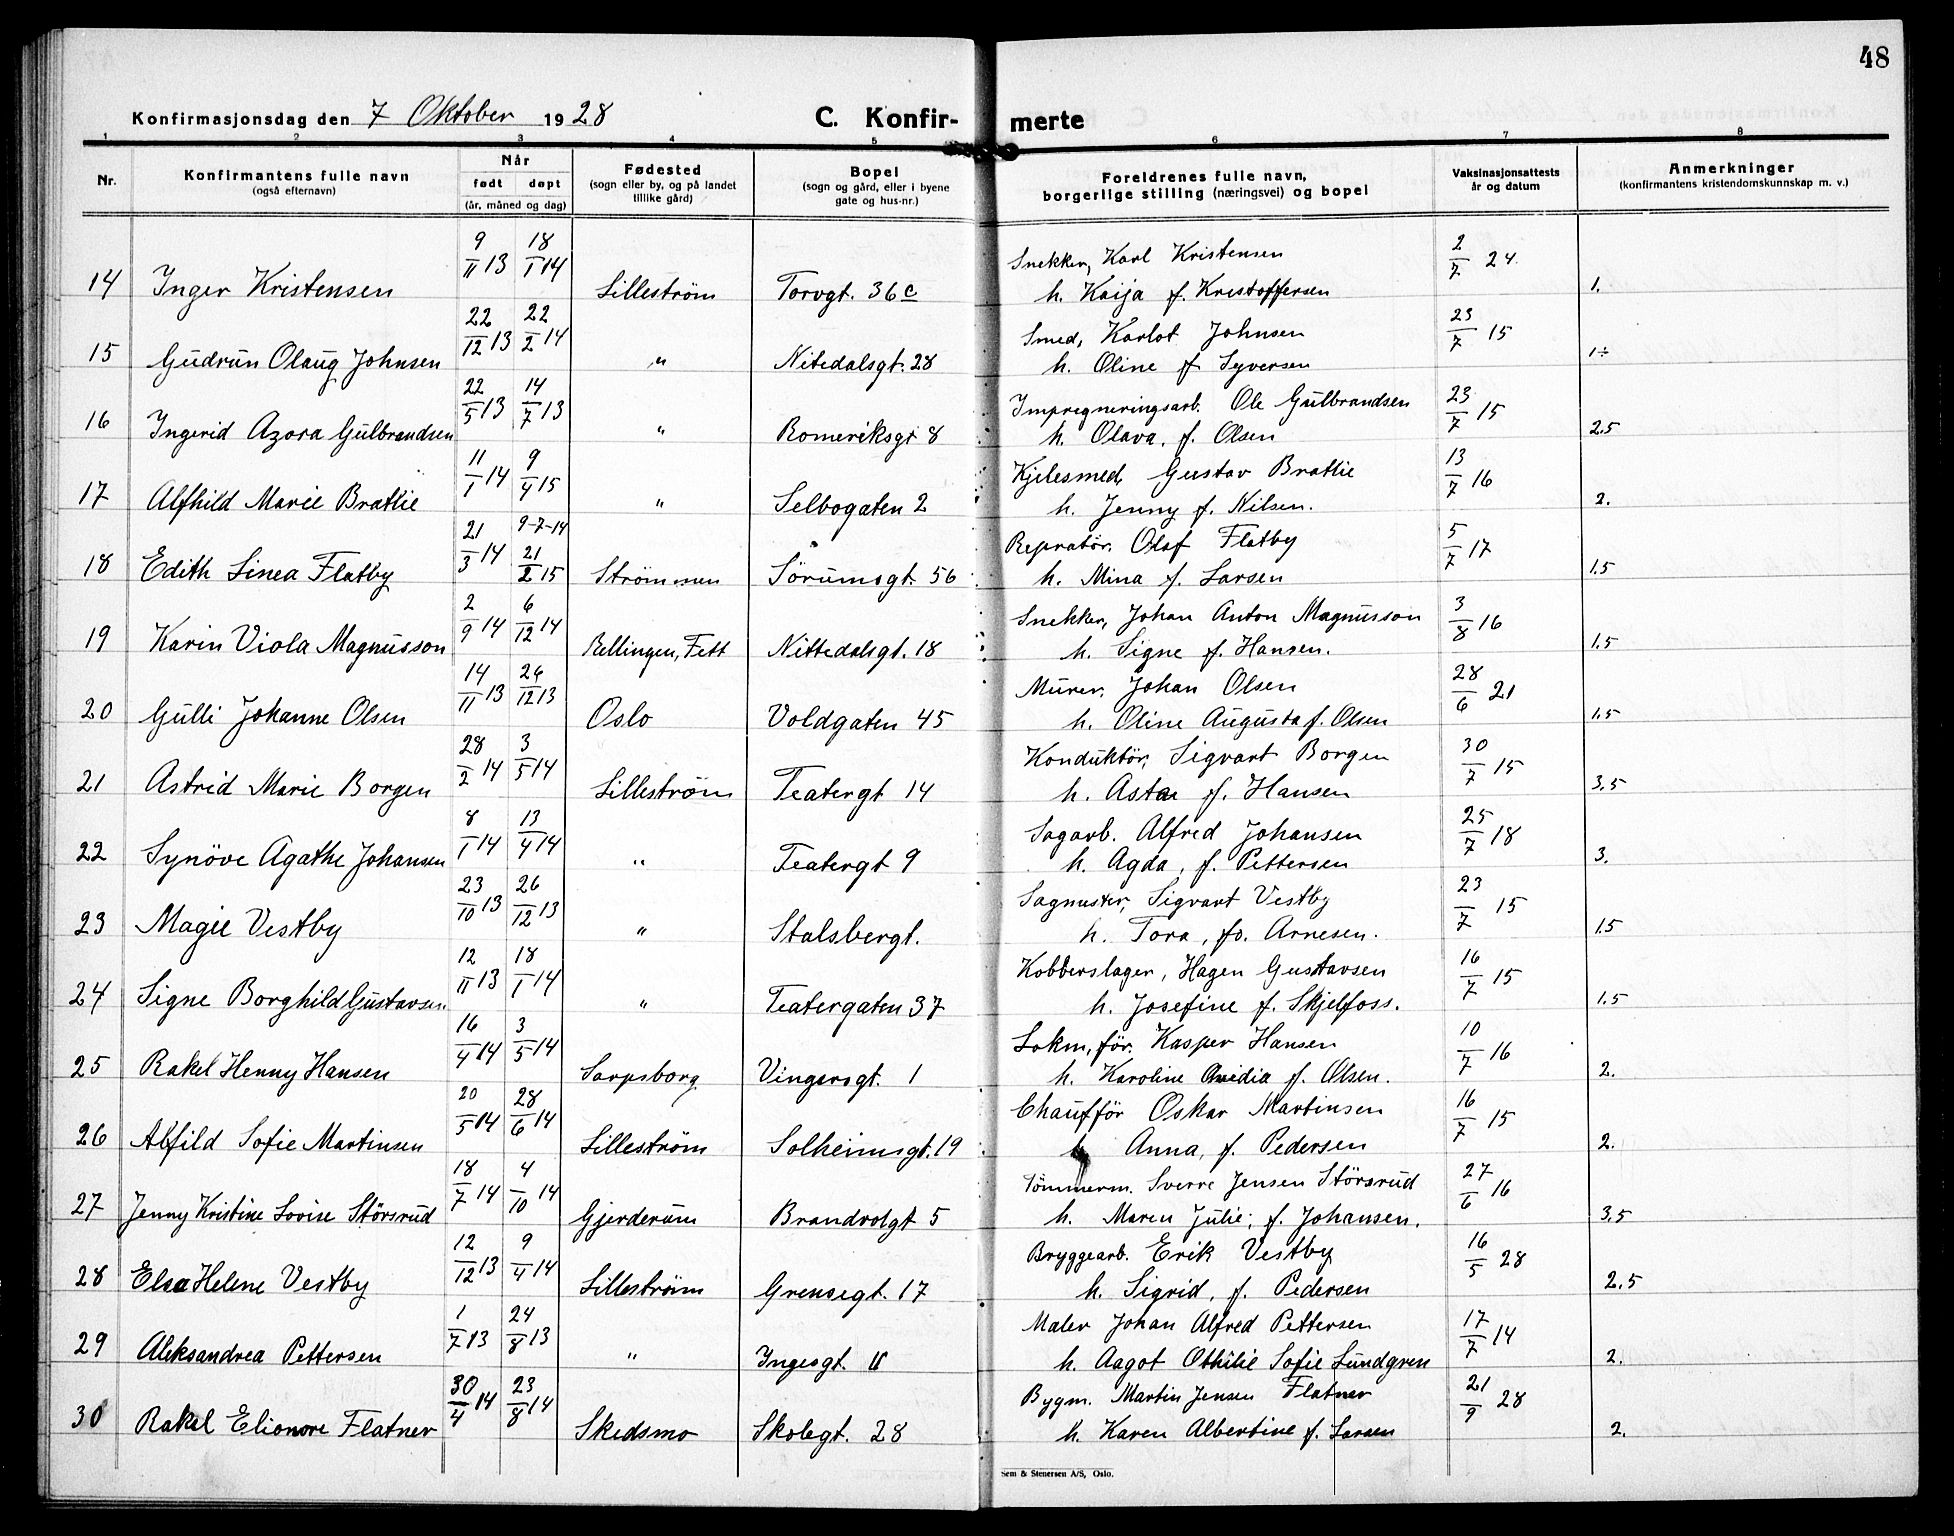 48
Konfirmasjonsdag den 7 Oktober 1928 C. Konfir- merte
1 2 3 4 5 6 7 8
Nr.
Konfirmantens fulle navn
(også efternavn)
Når
født døpt
(år, måned og dag)
Fødested
(sogn eller by, og på landet
tillike gård)
Bopel
(sogn og gård, eller i byene
gate og hus-nr.)
Foreldrenes fulle navn,
borgerlige stilling (næringsvei) og bopel
Vaksinasjonsattests
år og datum
Anmerkninger
(konfirmantens kristendomskunnskap m. v.)
9/11 13 18/1 14 Snekker, Karl Kristensen 2/7 24.
14 Inger Kristensen Lilleström Torvgt. 36c h. Kaija f. Kristoffersen 1.
22/12 13 22/2 14 Smed, Karlot Johnsen 23/7 15
15 Gudrun Olaug Johnsen " Nitedalsgt. 28 h. Oline f. Syversen 1÷
22/5 13 14/7 13 Impregneringsarb. Ole Gulbrandsen 23/7 15
16 Ingerid Azora Gulbrandsen " Romeriksgt 8 h. Olava, f. Olsen 2.5
11/1 14 9/4 15 Kjelesmed, Gustav Bratlie 13/7 16
17 Alfhild Marie Bratlie " Selbogaten 2 h. Jenny f. Nilsen. 2.
21/3 14 9-7-14 21/2 15 Repratör. Olaf Flatby 5/7 17
18 Edith Linea Flatby Strömmen Sörumsgt. 56 h. Mina f. Larsen 1.5
2/9 14 6/12 14 Snekker, Johan Anton Magnusson 3/8 16
19 Karin Viola Magnusson Rellingen, Fett Nittedalsgt. 18 h. Signe f. Hansen. 1.5
14/11 13 26/12 13 Murer, Johan Olsen 28/6 21
20 Gulli Johanne Olsen Oslo Voldgaten 45 h. Oline Augusta f. Olsen 1.5
28/2 14 3/5 14 Konduktör, Sigvart Borgen 30/7 15
21 Astrid Marie Borgen Lilleström Teatergt 14 h. Asta f. Hansen 3.5
8/1 14 13/4 14 Sagarb. Alfred Johansen 25/7 18
22 Synöve Agathe Johansen " Teatergt 9 h. Agda, f. Pettersen 3.
23/10 13 26/12 13 Sagmester, Sigvart Vestby 23/7 15
23 Magie Vestby " Stalsbergt. h. Tora, fo. Arnesen. 1.5
12/11 13 18/1 14 Kobberslager, Hagen Gustavsen 16/7 15
24 Signe Borghild Gustavsen " Teatergaten 37 h. Josefine f. Skjelfoss. 1.5
16/4 14 3/5 14 Lokm, för. Kasper Hansen 10/7 16
25 Rakel Henny Hansen Sarpsborg Vingersgt. 1 h. Karoline Ovidia f. Olsen. 2.
20/5 14 28/6 14 Chaufför Oskar Martinsen 16/7 15
26 Alfild Sofie Martinsen Lilleström Solheimsgt. 19 h. Anna, f. Pedersen 2.
18/7 14 4/10 14 Tömmerm. Sverre Jensen Störsrud 27/6 16
27 Jenny Kristine Lovise Störsrud Gjerderum Brandvolgt 5 h. Maren Julie, f. Johansen. 3.5
12/12 13 9/4 14 Bryggearb. Erik Vestby 16/5 28
28 Elsa Helene Vestby Lilleström Grensegt. 17 h. Sigrid, f. Pedersen 2.5
1/7 13 24/8 13 Maler Johan Alfred Pettersen 17/7 14
29 Aleksandrea Pettersen " Ingesgt. h. Aagot Othilie Sofie Lundgren 2.
30/4 14 23/8 14 Bygm. Martin Jensen Flatner 21/9 28
30 Rakel Elionore Flatner Skedsmo Skolegt. 28 h. Karen Albertine f. Larsen 2.
Sem & Stenersen A/S, Oslo.